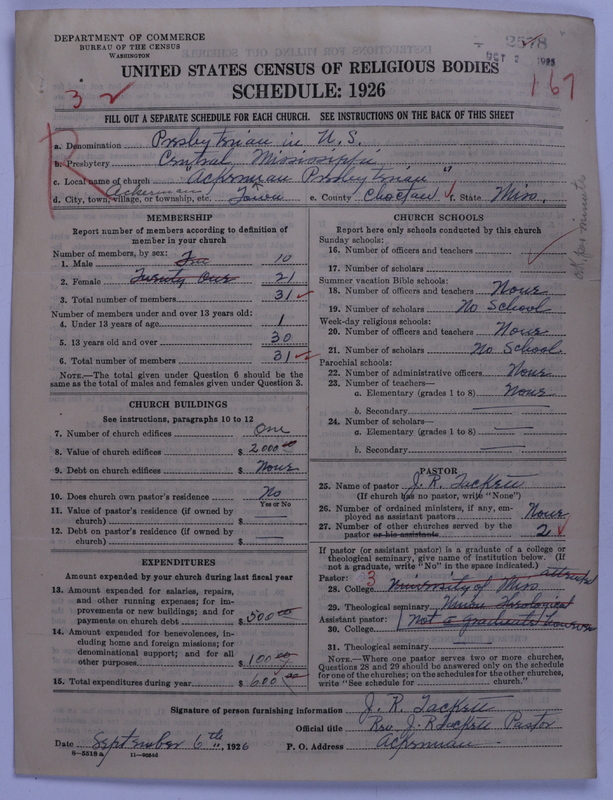 DEPARTMENT OF COMMERCE
BUREAU OF THE CENSUS
WASHINGTON
2578
OCT 2 1926
UNITED STATES CENSUS OF RELIGIOUS BODIES
SCHEDULE: 1926
3 167
FILL OUT A SEPARATE SCHEDULE FOR EACH CHURCH. SEE INSTRUCTIONS ON THE BACK OF THIS SHEET
R
a. Denomination Presbyterian in U.S.
b. Presbytery Central Mississippi
c. Local name of church "Ackerman Presbyterian"
d. City, town, village, or township, etc. Ackerman Town e. County Choctaw f. State Miss.
MEMBERSHIP
Report number of members according to definition of member in your church
Number of members, by sex:
1. Male Ten 10
2. Female Twenty One 21
3. Total number of members 31
Number of members under and over 13 years old:
4. Under 13 years of age 1
5. 13 years old and over 30
6. Total number of members 31
NOTE.—The total given under Question 6 should be
same as the total of males and females given under Question 3.
CHURCH BUILDINGS
See instructions, paragraphs 10 to 12
7. Number of church edifices One
8. Value of church edifices $ 2000 00
9. Debt on church edifices $ None
10. Does church own pastor's residence No
Yes or No
11. Value of pastor's residence (if owned by
church) $
12. Debt on pastor's residence (if owned by
church) $
EXPENDITURES
Amount expended by your church during last fiscal year
13. Amount expended for salaries, repairs,
and other running expenses; for im-
provements or new buildings; and for
payments on church debt $ 500 00
14. Amount expended for benevolences, in-
cluding home and foreign missions; for
denominational support; and for all
other purposes $ 100 00
15. Total expenditures during year $ 600 00
CHURCH SCHOOLS
Report here only schools conducted by this church
Sunday schools:
16. Number of officers and teachers
17. Number of scholars
Summer vacation Bible schools:
18. Number of officers and teachers None
19. Number of scholars No School
Week-day religious schools:
20. Number of officers and teachers None
21. Number of scholars No School
Parochial schools:
22. Number of administrative officers None
23. Number of teachers—
a. Elementary (grades 1 to 8) None
b. Secondary
24. Number of scholars—
a. Elementary (grades 1 to 8)
b. Secondary
PASTOR
25. Name of pastor J. R. Tackett
(If church has no pastor, write "None")
26. Number of ordained ministers, if any, em-
ployed as assistant pastors None
27. Number of other churches served by the
pastor or his assistants 2
If pastor (or assistant pastor) is a graduate of a college or
theological seminary, give name of institution below. (If
not a graduate, write "No" in the space indicated.)
Pastor: 3
28. College University of Miss attended
29. Theological seminary Union Theological
Assistant pastor: Not a graduate however
30. College
31. Theological seminary
NOTE.—Where one pastor serves two or more churches,
Questions 28 and 29 should be answered only on the schedule
for one of the churches; on the schedules for the other churches,
write "See schedule for church."
Signature of person furnishing information J. R. Tackett
Official title Rev. J. R. Tackett Pastor
Date September 6th, 1926 P. O. Address Ackerman
8—5518 a